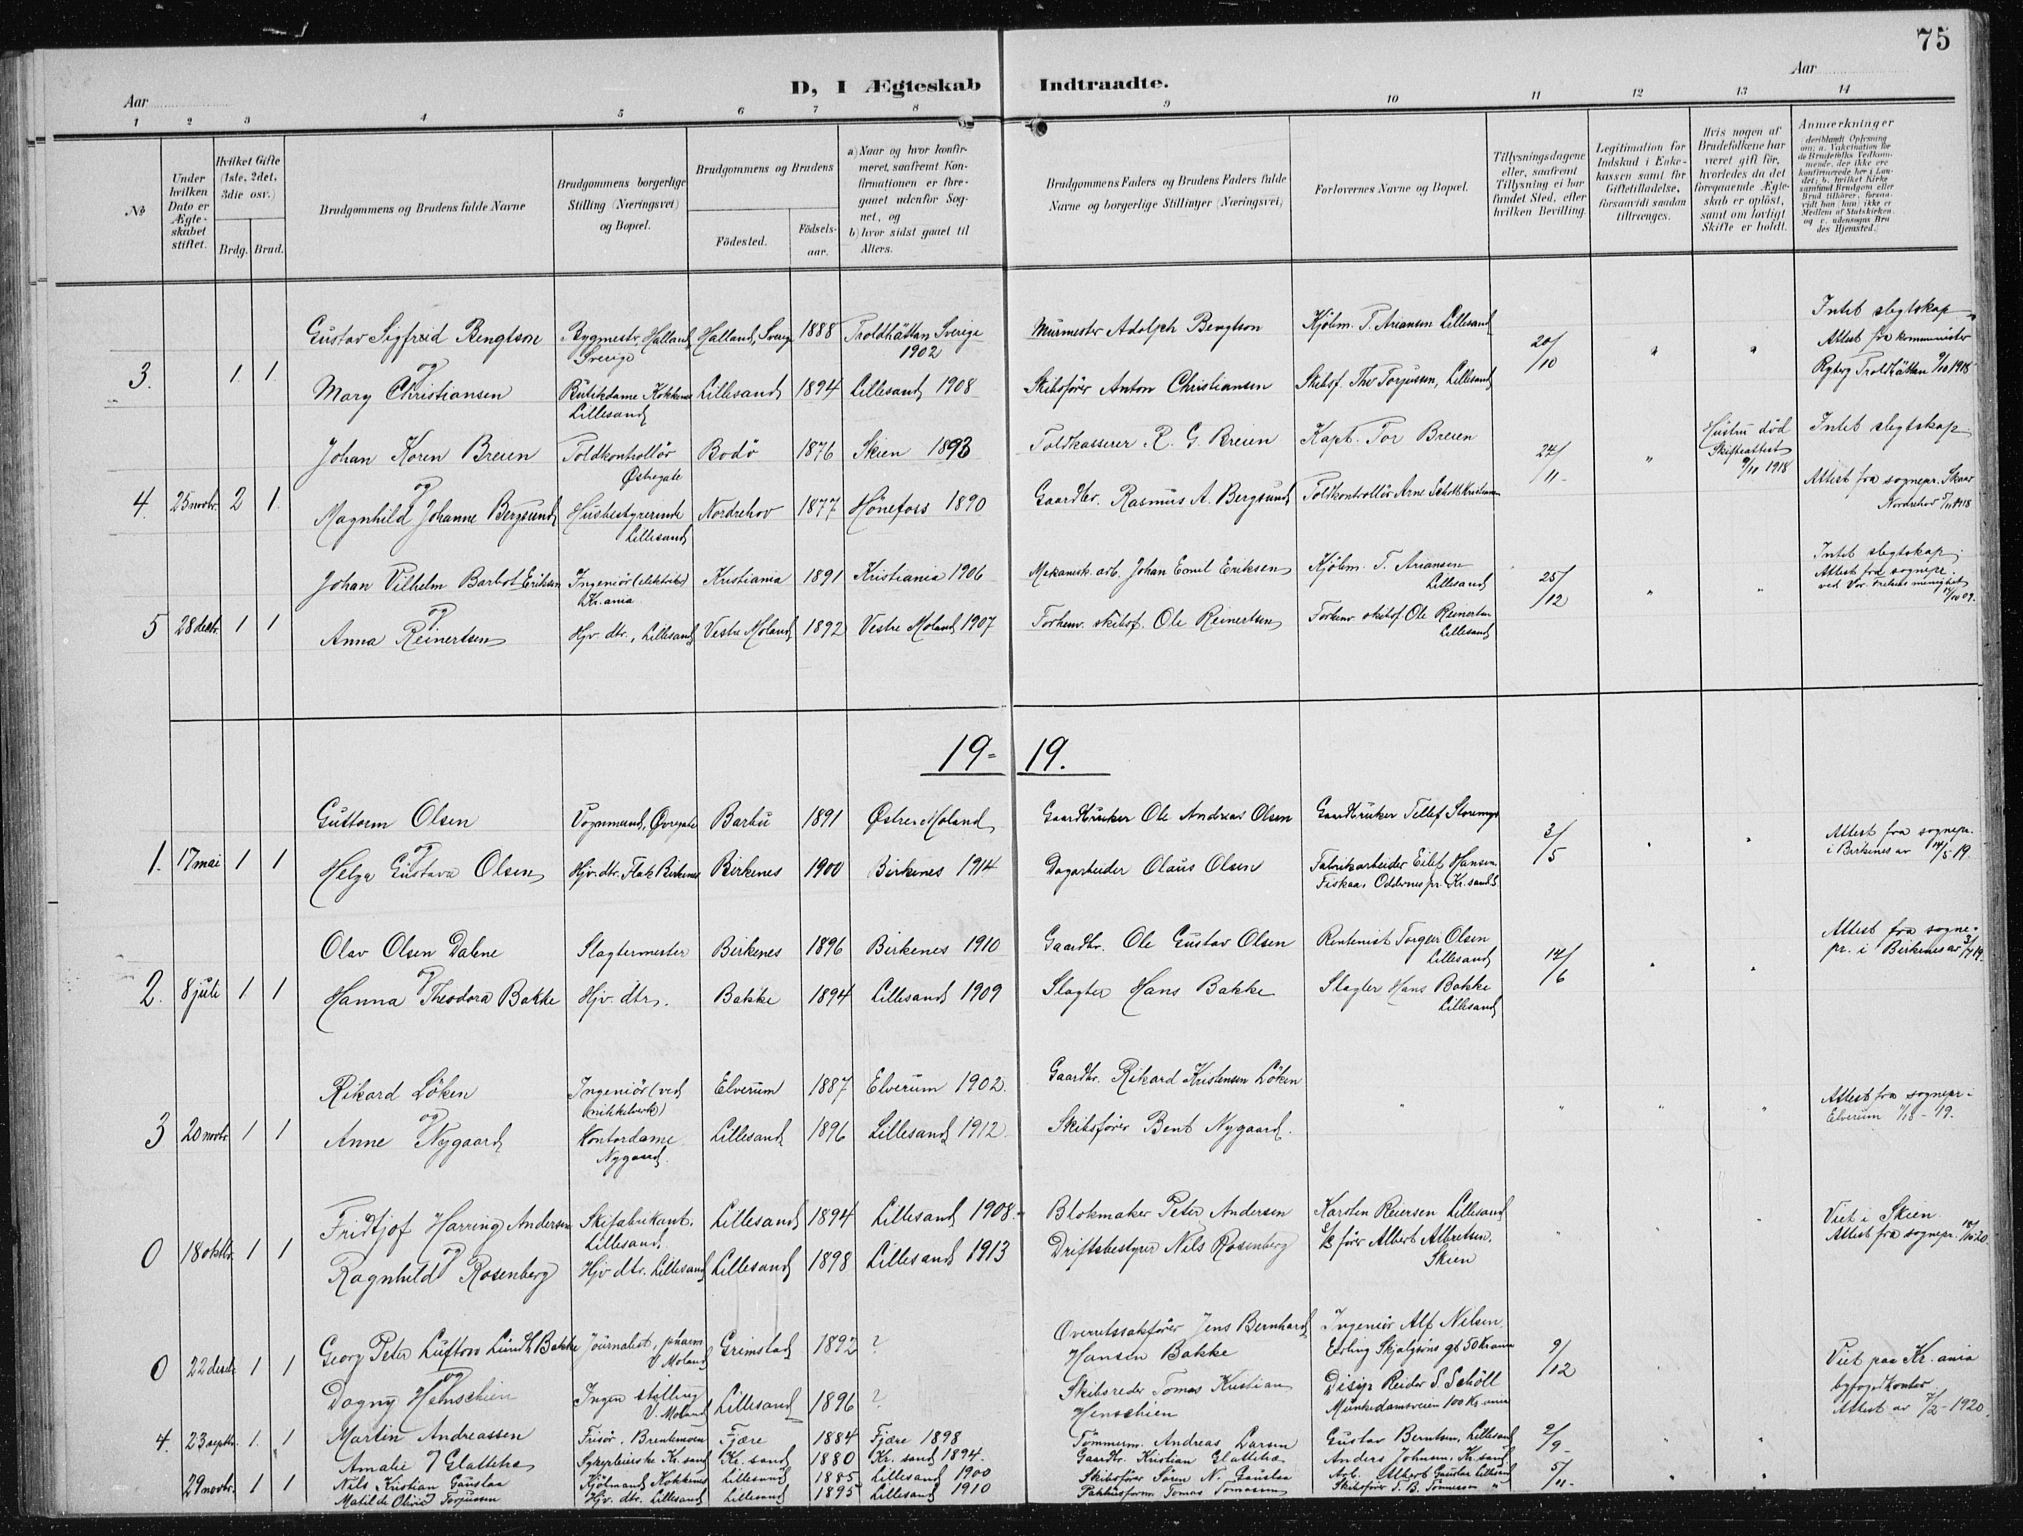 75
D, I Ægteskab Indtraadte.
Aar
Aar
1 2 3 4 5 6 7 8 9 10 11 12 13 14
No
Under hvilken Dato er Ægteskabet stiftet.
Hvilket Gifte (1ste, 2det, 3die osv.)
Brdg. Brud.
Brudgommens og Brudens fulde Navne
Brudgommens borgerlige Stilling (Næringsvei) og Bopæl.
Brudgommens og Brudens
Födested.
Födselsaar.
a) Naar og hvor konfirmeret, saafremt Konfirmationen er foregaaet udenfor Sognet, og
b) hvor sidst gaaet til Alters.
Brudgommens Faders og Brudens Faders fulde Navne og borgerlige Stillinger (Næringsvei)
Forlovernes Navne og Bopæl.
Tillysningsdagene eller, saafremt Tillysning ei har fundet Sted, efter hvilken Bevilling.
Legitimation for Indskud i Enkekassen samt for Giftetilladelse, forsaavidt saadan tiltrænges.
Hvis nogen af Brudefolkene har været gift för, hvorledes da det foregaaende Ægteskab er oplöst, samt om lovligt Skifte er holdt.
Anmærkninger
Gustav Sigfred Bengtson Bygmestr. Halland, Sverige Halland, Sverig 1888 Troldhättan Sverige 1902 Murmester Adolph Bengtson Kjøbm. T. Ariansen Lillesand
3. 1. 1. og 20/10 " " Intet slegtskap Attest fra kommunister Ryberg Troldhättan 9/10 1918
Mary Christiansen Butikdame Kokkenes Lillesand Lillesand 1894 Lillesand 1908 Skibsfører Anton Christiansen Skibsf. Thv Torjussen, Lillesand
Johan Koren Breien Toldkontrollör Østregate Bodö 1876 Skien 1893 Toldkasserer R. G. Breien Kapt. Tor Breien
4. 25 novbr. 2 1. og 24/11 " Hustru död Skifteattest 9/11 1918 Intet slegtskap
Magnhild Johanne Bergsund Husbestyrerinde Lillesand Nordrehov 1877 Hönefoss 1890 Gaardbr. Rasmus A. Bergsund Toldkontrollör Arne Attest fra sognepr. Nordrehov
Johan Vilhelm Barbot Eriksen Ingeniör (elektrisk) Kr.ania Kristiania 1891 Kristiania 1906 Mekanisk arb. Johan Emil Eriksen Kjöbm. T. Ariansen Lillesand
5 28 desbr. 1 1 og 25/12 " " Intet slegtskap. Attest fra sognepr. ved Vor Frelsers menighet
Anna Reinertsen Hjv. dtr., Lillesand Vestre Moland 1892 Vestre Moland 1907 Forhenv. skibsf. Ole Reinertsen Forhenv. skibsf. Ole Reinertsen Lillesand
19 - 19.
Guttorm Olsen Vognmand, Øvregate Barbu 1891 Østre Moland Gaardbruker Ole Andreas Olsen Gaardbruker Tellef
1. 17 mai 1 1 og 3/5 " " Attest fra sognepr. i Birkenes av 14/5 19.
Helga Gustava Olsen Hjv. dtr. Flak Birkenes Birkenes 1900 Birkenes 1914 Dagarbeider Olaus Olsen Fabrikarbeider Eilef Hansen Fiskaa, Oddernes pr. Kr.sand S
Olav Olsen Dalene Slagtermester Birkenes 1896 Birkenes 1910 Gaardbr. Ole Gustav Olsen Rentenist Torgeir Olsen Lillesand
2. 8 juli 1 1 og 14/6 " " Attest fra sognepr. i Birkenes av 3/7 19.
Hanna Theodora Bakke Hjv. dtr. Bakke 1894 Lillesand 1909 Slagter Hans Bakke Slagter Hans Bakke Lillesand
Rikard Löken Ingeniör (ved nikkelverk) Elverum 1887 Elverum 1902. Gaardbr. Rikard Kristensen Löken
3 20 novbr. 1 1 og " " " " Attest fra sognepr. Elverum
Anne Nygaard Kontordame Nygaard. Lillesand 1896 Lillesand 1912. Skibsfører Bent Nygaard.
Fridtjof Harring Andersen Skifabrikant. Lillesand. Lillesand 1894 Lillesand 1908. Blokmaker Peter Andersen Karsten Reiersen Lillesand
0 18 oktbr. 1 1 og " " " Viet i Skien. Attest fra sognepr.
Ragnhild Rosenberg Hjv. dtr. Lillesand Lillesand 1898 Lillesand 1913 Driftsbestyrer Nils Rosenberg fører Albert Albretsen. Skien
Georg Peter Luftow Lundh Bakke Journalist, V. Moland Grimstad 1892 ? Overretssakfører Jens Bernhard Hansen Bakke Ingeniør Alf Nilsen. Erling Skjalgsøns gt 50 Kr.ania
0 22 desbr. 1 1 og 9/12 Viet paa Kr.ania byfogedkontor
Dagny Henschien Ingen stilling V. Moland Lillesand 1896 ? Skibsreder Tomas Kristian Henschien Reidar S. Schöll Munkedamsveien 100 Kr.ania Attest av 7/2-1920.
4. 23 septbr. 1. 1 Martin Andreassen Frisør. Brentemoen Fjære 1884 Fjære 1898 Tömmerm. Andreas Larsen Gustav Berntsen, Lillesand 2/9
Amalie Glattetre Kr.sand Kr.sand 1880 Kr.sand 1894. Gaardbr. Kristian Glattetre Anders Johnsen, Kr.sand
29 novbr. 1 1 Nils Kristian Gaustaa Kjöbmand Kokkenes Lillesand 1885 Lillesand 1900 Skibsfører Sören N. Gaustaa Arb. Albert Gaustaa Lillesand 5/11
Matilde Olivia Torjussen Hjv. dtr. Lillesand Lillesand 1895 Lillesand 1910 Tomas Skibsfører T. B. Tönnessen "